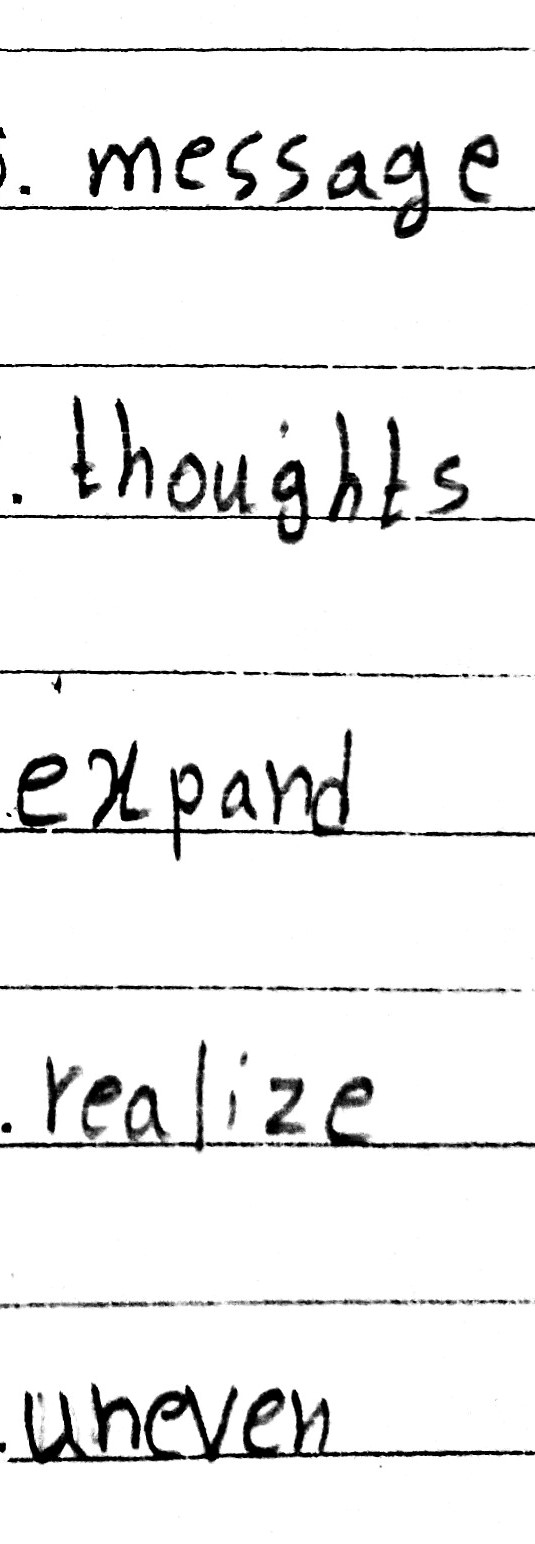 . message
. thoughts
. expand
. realize
. uneven